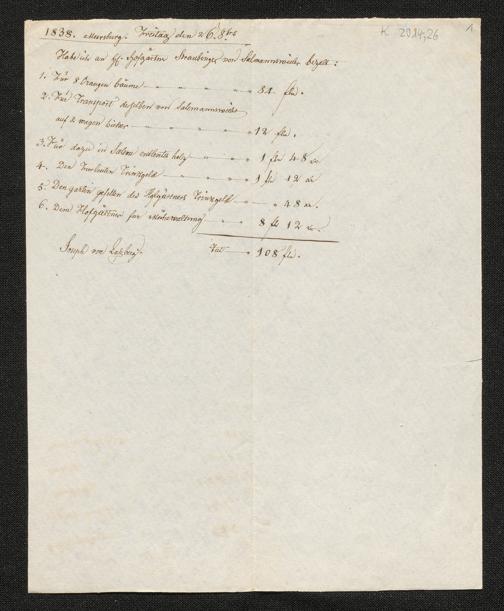 K. 2014,26
1
1838. Meersburg: Freitag den 26. 8br
Habe ich an H. Hofgärtner Straubinger von Salmannsweiler bezalt:
1. Für 8 Orangen bäume 84 fl.
2. Für Transport derselben von Salmannsweiler
auf 2 wegen bisher 12 fl.
3. Für dazu in Salem entlente holz 1 fl 48 xr
4. Den Fuhrleuten Trinkgeld 1 fl 12 xr
5. Den garten gesellen des Hofgärtners Trinkgeld 48 xr.
6. Dem Hofgärtner für 8 fl 12 xr.
Joseph von Laßberg. 108 fl.